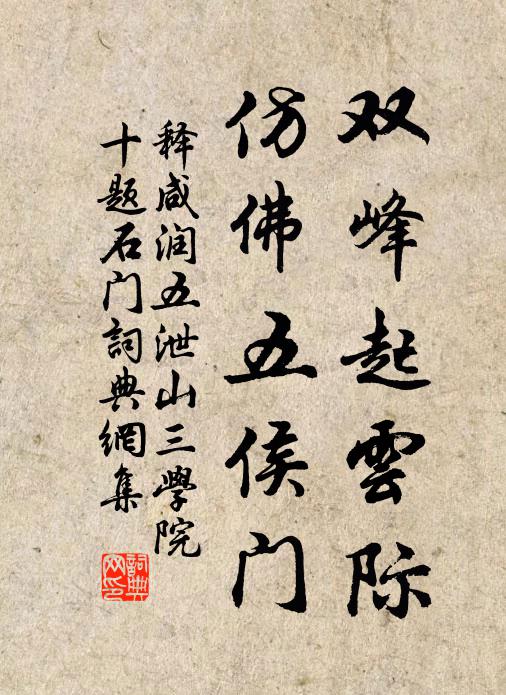 双峰起雲际
仿佛五侯门
释咸润五泄山三學院
十题石门詞典網集
詞典网印